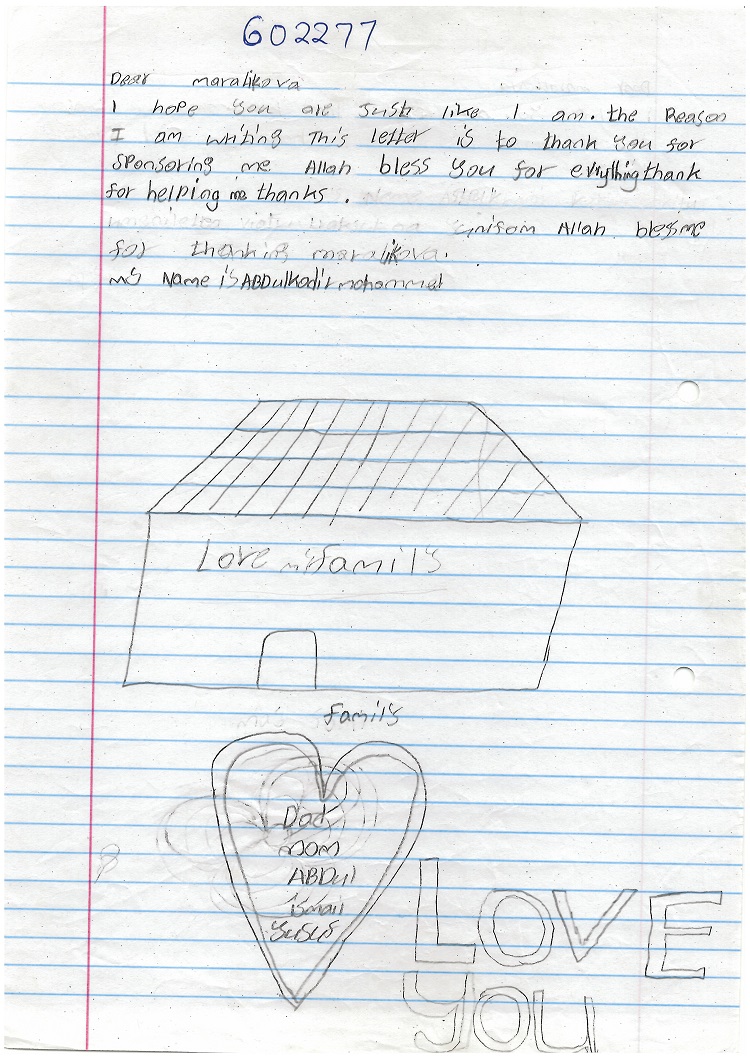 602277
Dear maralikova
I hope you are Just like I am. the Reason
I am writing This letter is to thank you for
SPonsoring me Allah bless you for evrything thank
for helping me thanks.
Allah blessme
for thanking maralikova.
my Name is ABDulkadir mohammed
Love my family
family
Dad
mom
ABDul
ismail
LOVE
you